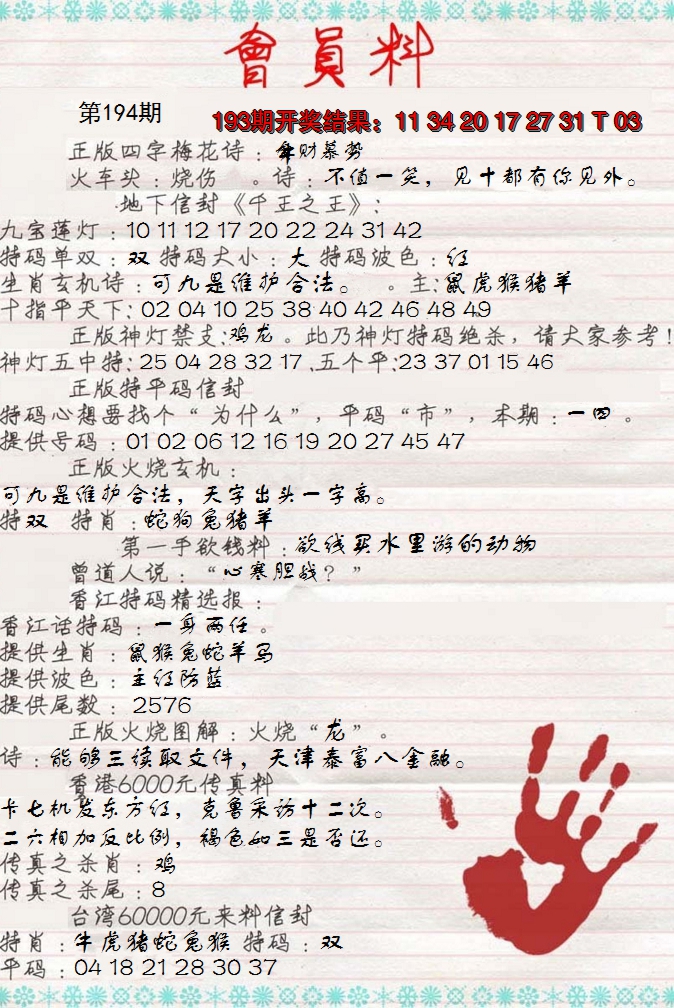 會員料
第194期
193期开奖结果：11 34 20 17 27 31 T 03
正版四字梅花诗：财暴势
火车头：烧伤 。诗：不值一笑，见十都有你见外。
地下信封《千王之王》：
九宝莲灯：10 11 12 17 20 22 24 31 42
特码单双：双 特码大小：大 特码波色：红
生肖玄机诗：可九是维护合法。 。主:鼠虎猴猪羊
十指平天下：02 04 10 25 38 40 42 46 48 49
正版神灯禁支:鸡龙。此乃神灯特码绝杀，请大家参考！
神灯五中特:25 04 28 32 17 .五个平:23 37 01 15 46
正版特平码信封
特码心想要找个“为什么”，平码“市”，本期：一四。
提供号码：01 02 06 12 16 19 20 27 45 47
正版火烧玄机：
可九是维护合法，天字出头一字高。
特双 特肖：蛇狗兔猪羊
第一手欲钱料：欲钱买水里游的动物
曾道人说：“心寒胆战？”
香江特码精选报：
香江话特码：一身两任。
提供生肖：鼠猴兔蛇羊马
提供波色：主红防蓝
提供尾数：2576
正版火烧图解：火烧“龙”。
诗：能够三读取文件，天津泰富八金融。
香港6000元传真料
卡七机发东方红，克鲁采访十二次。
二六相加反比例，褐色如三是否还。
传真之杀肖：鸡
传真之杀尾：8
台湾60000元来料信封
特肖：牛虎猪蛇兔猴 特码：双
平码：04 18 21 28 30 37